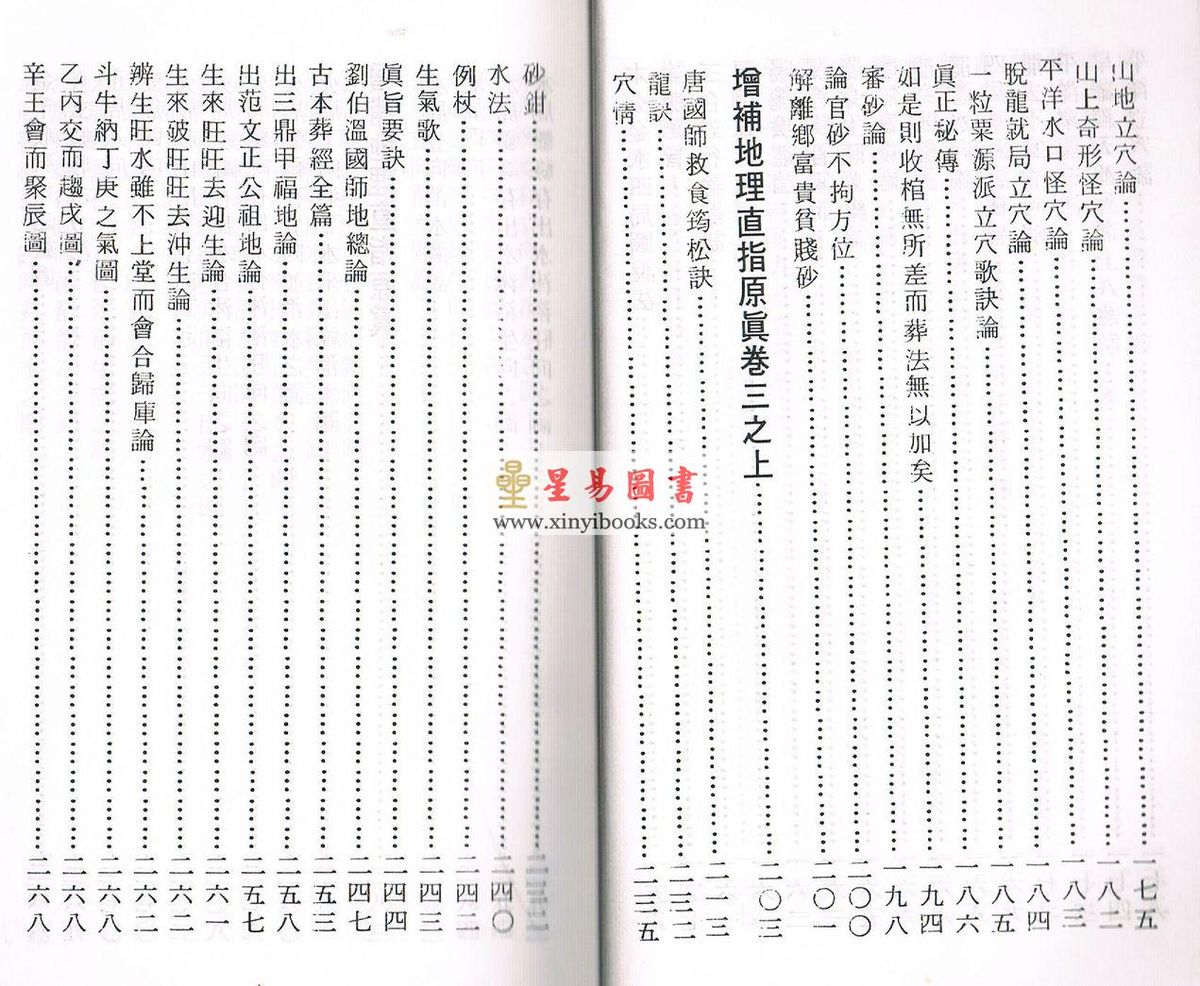 山地立穴論……一七五
山上奇形怪穴論……一八二
平洋水口怪穴論……一八三
脫龍就局立穴論……一八四
一粒粟源派立穴歌訣論……一八五
眞正秘傳……一八六
如是則收棺無所差而葬法無以加矣……一九四
審砂論……一九八
論官砂不拘方位……二〇〇
解離鄉富貴貧賤砂……二〇一
增補地理直指原眞卷三之上……二〇三
唐國師救食筠松訣……二一三
龍訣……二三二
穴情……二三五
砂鉗
水法……二四〇
例杖……二四二
生氣歌……二四三
眞旨要訣……二四四
劉伯溫國師地總論……二四七
古本葬經全篇……二五三
出三鼎甲福地論……二五八
出范文正公祖地論……二五七
生來旺旺去迎生論……二六一
生來破旺旺去沖生論……二六二
辨生旺水雖不上堂而會合歸庫論……二六二
斗牛納丁庚之氣圖……二六八
乙丙交而趨戌圖……二六八
辛壬會而聚辰圖……二六八
星易圖書
www.xinyibooks.com